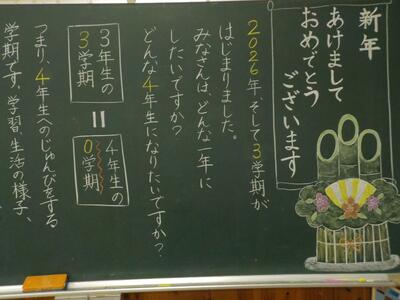 新年
あけまして
おめでとう
ございます
2026年、そして3学期が
はじまりました。
みなさんは、どんな一年に
したいですか？
どんな4年生になりたいですか？
3年生の
3学期
=
4年生の
0学期
つまり、4年生へのじゅんびをする
学期です。学習、生活の様子、